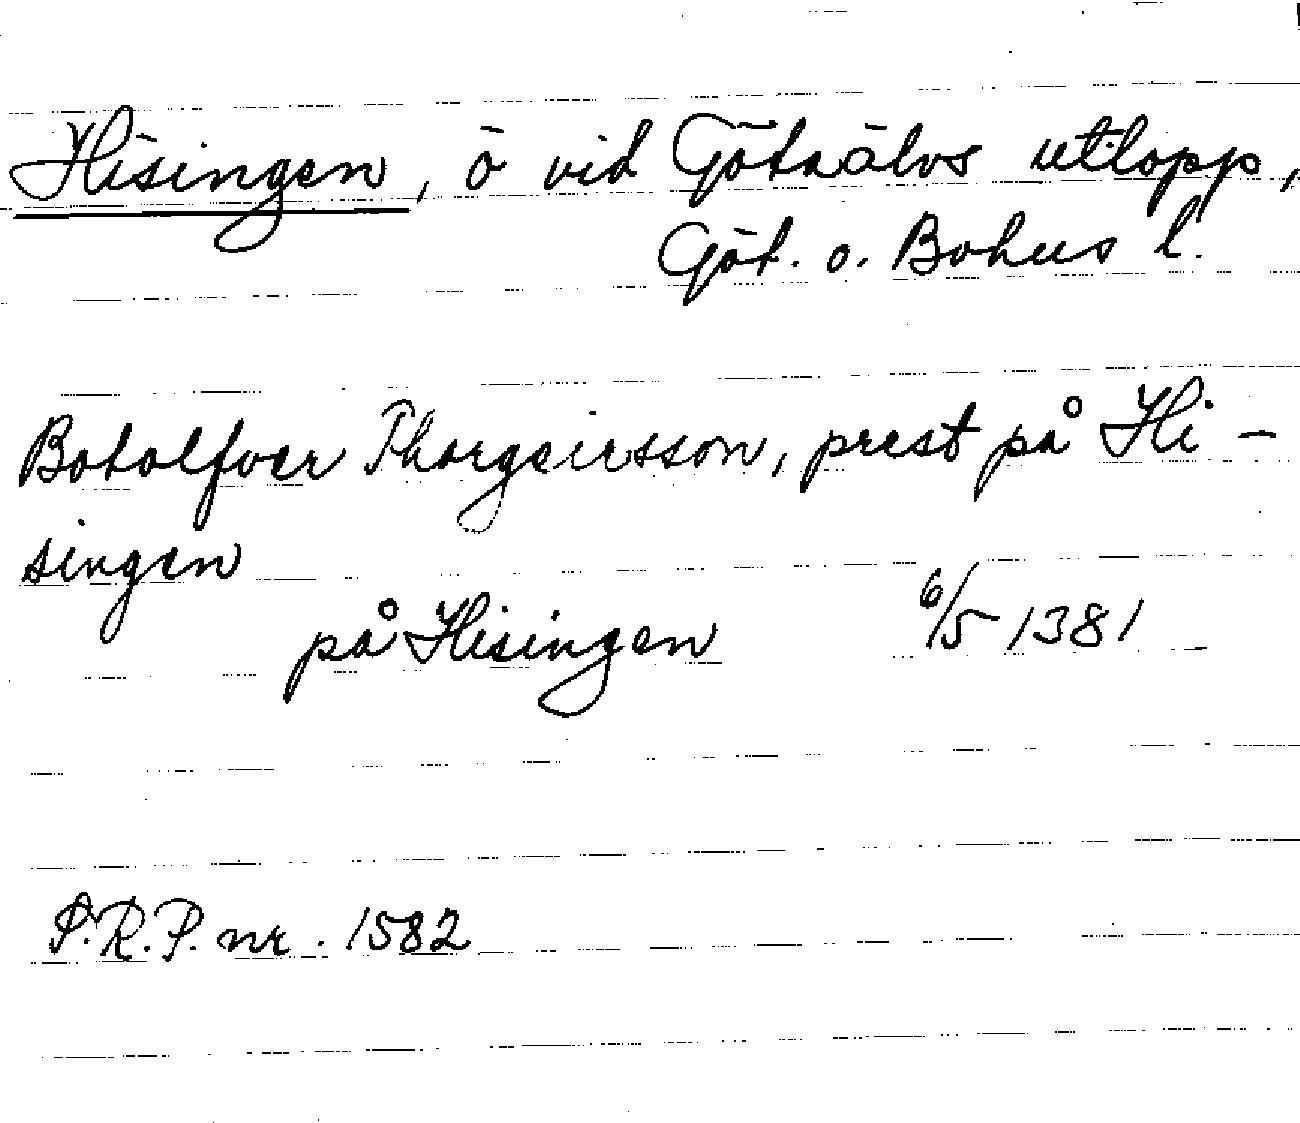 Hisingen, ö vid Götaälvs utlopp,
Göt. o. Bohus l.
Botolfver Thorgeirsson, prest på Hi-
singen
på Hisingen 6/5 1381
S.R.P. nr. 1582